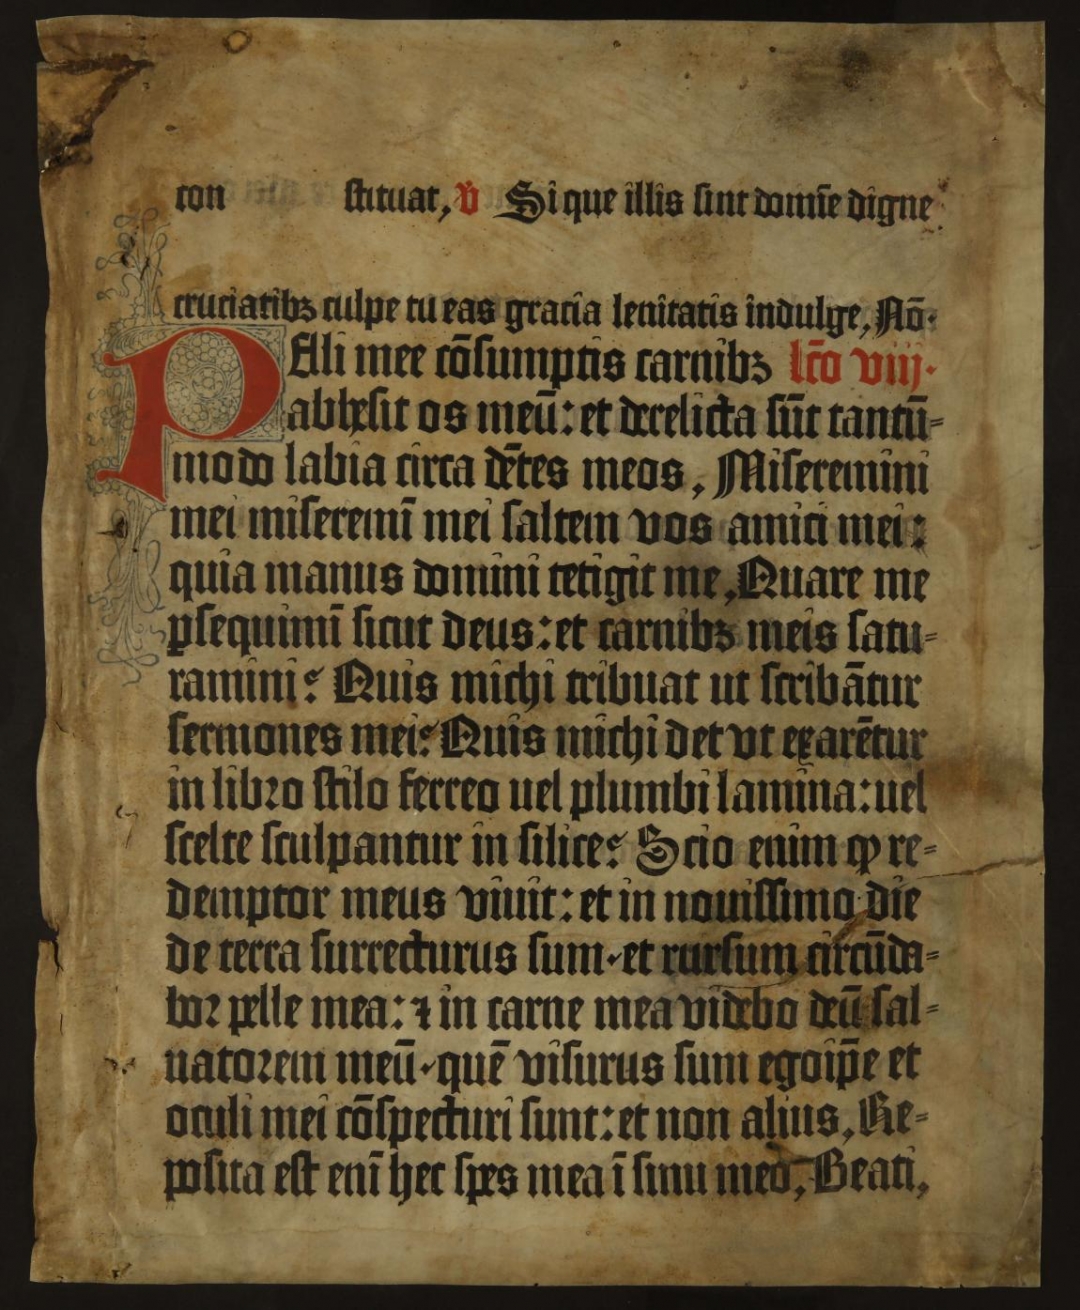 con stituat, v Si que illis sint domīe digne
cruciatibꝫ culpe tu eas gracia lenitatis indulge, Nō.
PElli mee cōsumptis carnibꝫ lc̄o viij.
abhesit os meū: et derelicta sūt tantū=
modo labia circa dētes meos, Miseremini
mei miseremī mei saltem vos amici mei:
quia manus domini tetigit me, Quare me
psequimī sicut deus: et carnibꝫ meis satu=
ramini? Quis michi tribuat ut scribātur
sermones mei? Quis michi det vt exarētur
in libro stilo ferreo uel plumbi lamina: uel
scelte sculpantur in silice? Scio enim ꝙ re=
demptor meus viuit: et in nouissimo die
de terra surrecturus sum. et rursum circūda=
bor pelle mea: ⁊ in carne mea videbo deū sal=
uatorem meū. quē visurus sum ego ip̄e et
oculi mei cōspecturi sunt: et non alius, Re=
posita est enī hec spes mea ī sinu meo, Beati,